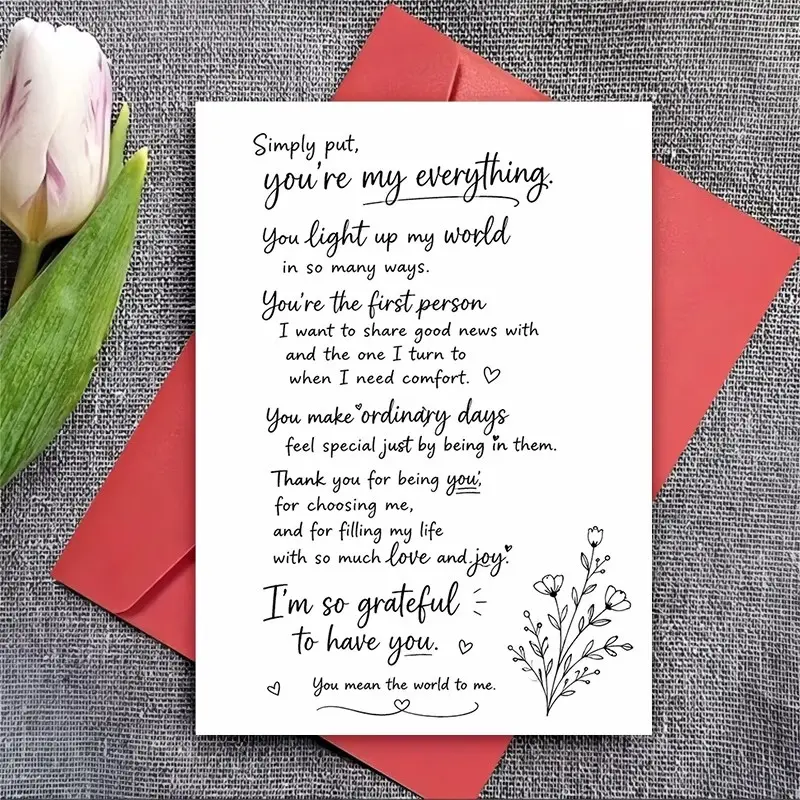 Simply put,
you're my everything.
You light up my world
in so many ways.
You're the first person
I want to share good news with
and the one I turn to
when I need comfort.
You make ordinary days
feel special just by being in them.
Thank you for being you,
for choosing me,
and for filling my life
with so much love and joy.
I'm so grateful
to have you.
You mean the world to me.